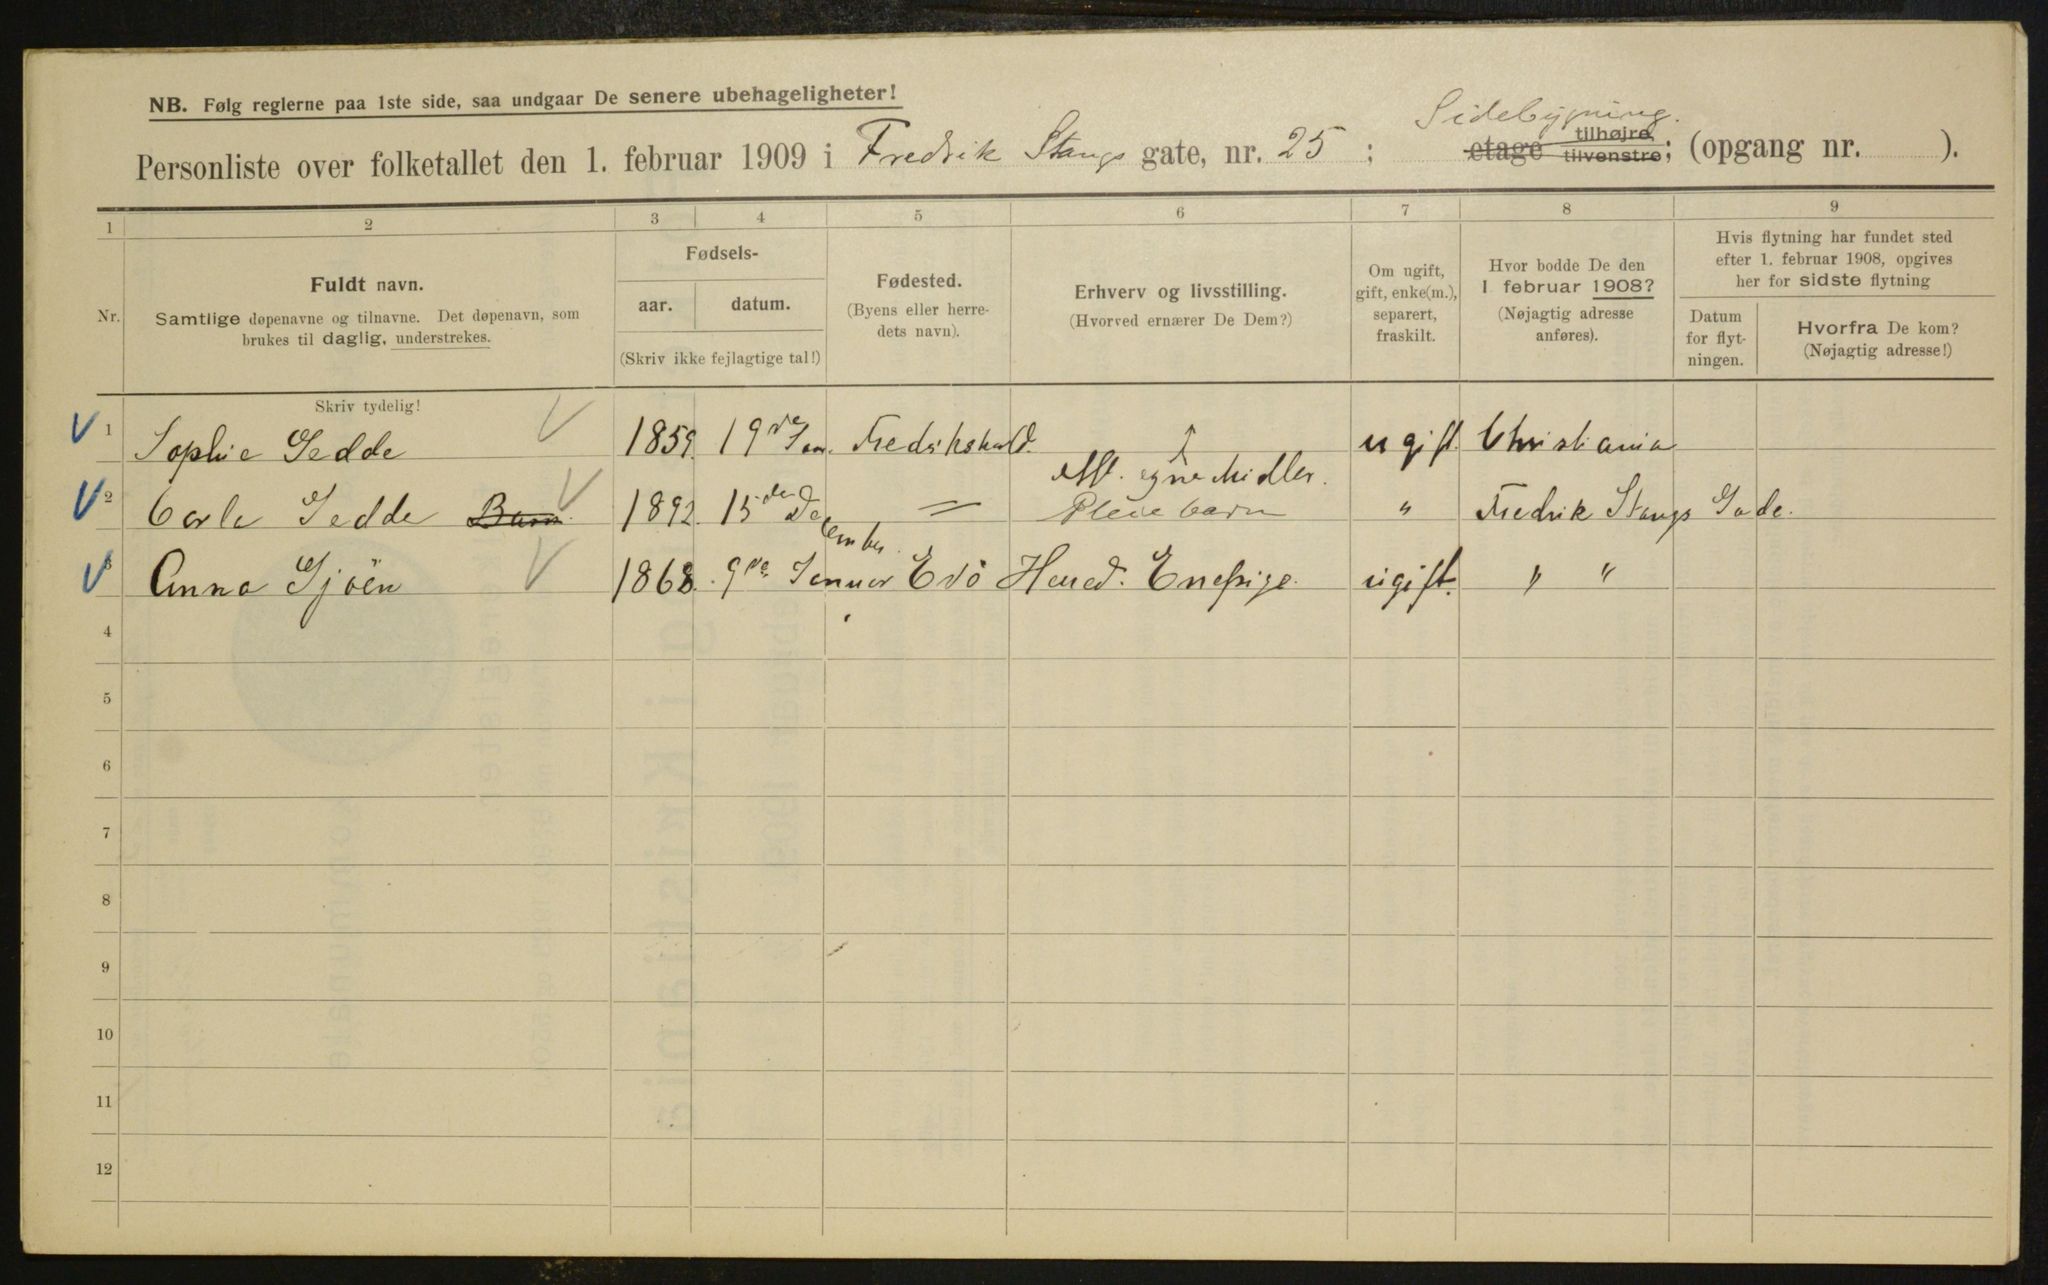 NB. Følg reglerne paa 1ste side, saa undgaar De senere ubehageligheter!
Sidebygning.
Personliste over folketallet den 1. februar 1909 i Fredrik Stangs gate, nr. 25 ; etage tilhøjre tilvenstre; (opgang nr. ).
1 2 3 4 5 6 7 8 9
Nr.
Fuldt navn.
Samtlige døpenavne og tilnavne. Det døpenavn, som
brukes til daglig, understrekes.
Skriv tydelig!
Fødsels-
aar. datum.
(Skriv ikke fejlagtige tal!)
Fødested.
(Byens eller herre-
dets navn).
Erhverv og livsstilling.
(Hvorved ernærer De Dem?)
Om ugift,
gift, enke(m.),
separert,
fraskilt.
Hvor bodde De den
1 februar 1908?
(Nøjagtig adresse
anføres).
Hvis flytning har fundet sted
efter 1. februar 1908, opgives
her for sidste flytning
Datum
for flyt-
ningen.
Hvorfra De kom?
(Nøjagtig adresse!)
1 Sophie Gedde 1859. 19de Jan. Fredrikshald. ugift. Christiania
egne Midler.
2 Carla Gedde Barn 1892. 15de December. Pleiebarn " Fredrik Stangs Gade.
3 Anna Sjöen 1868. 9de Januar Enepige. ugift. " "
4
5
6
7
8
9
10
11
12